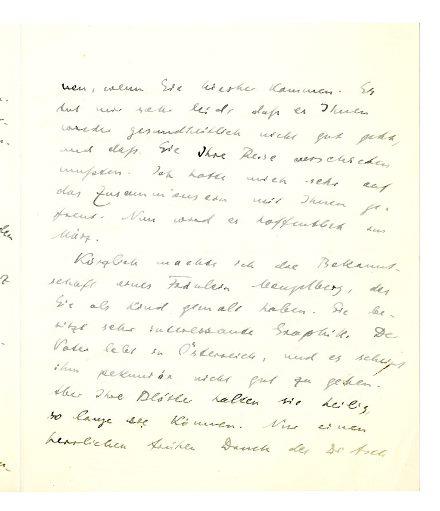 nen, wenn Sie hierher kommen. Es
tut mir sehr leid, daß es Ihnen
wieder gesundheitlich nicht gut geht,
und daß Sie Ihre Reise verschieben
mußten. Ich hatte mich sehr auf
das Zusammensein mit Ihnen ge-
freut. Nun wird es hoffentlich im
März.
Kürzlich machte ich die Bekannt-
schaft eines Fräulein, die
Sie als Kind gemalt haben. Sie be-
sitzt sehr interessante Graphik. Der
Vater lebt in Österreich, und es scheint
ihm pekuniär nicht gut zu gehen.
Aber Ihre Blätter halten sie heilig,
so lange sie können. Nur einen
herrlichen frühen Druck der